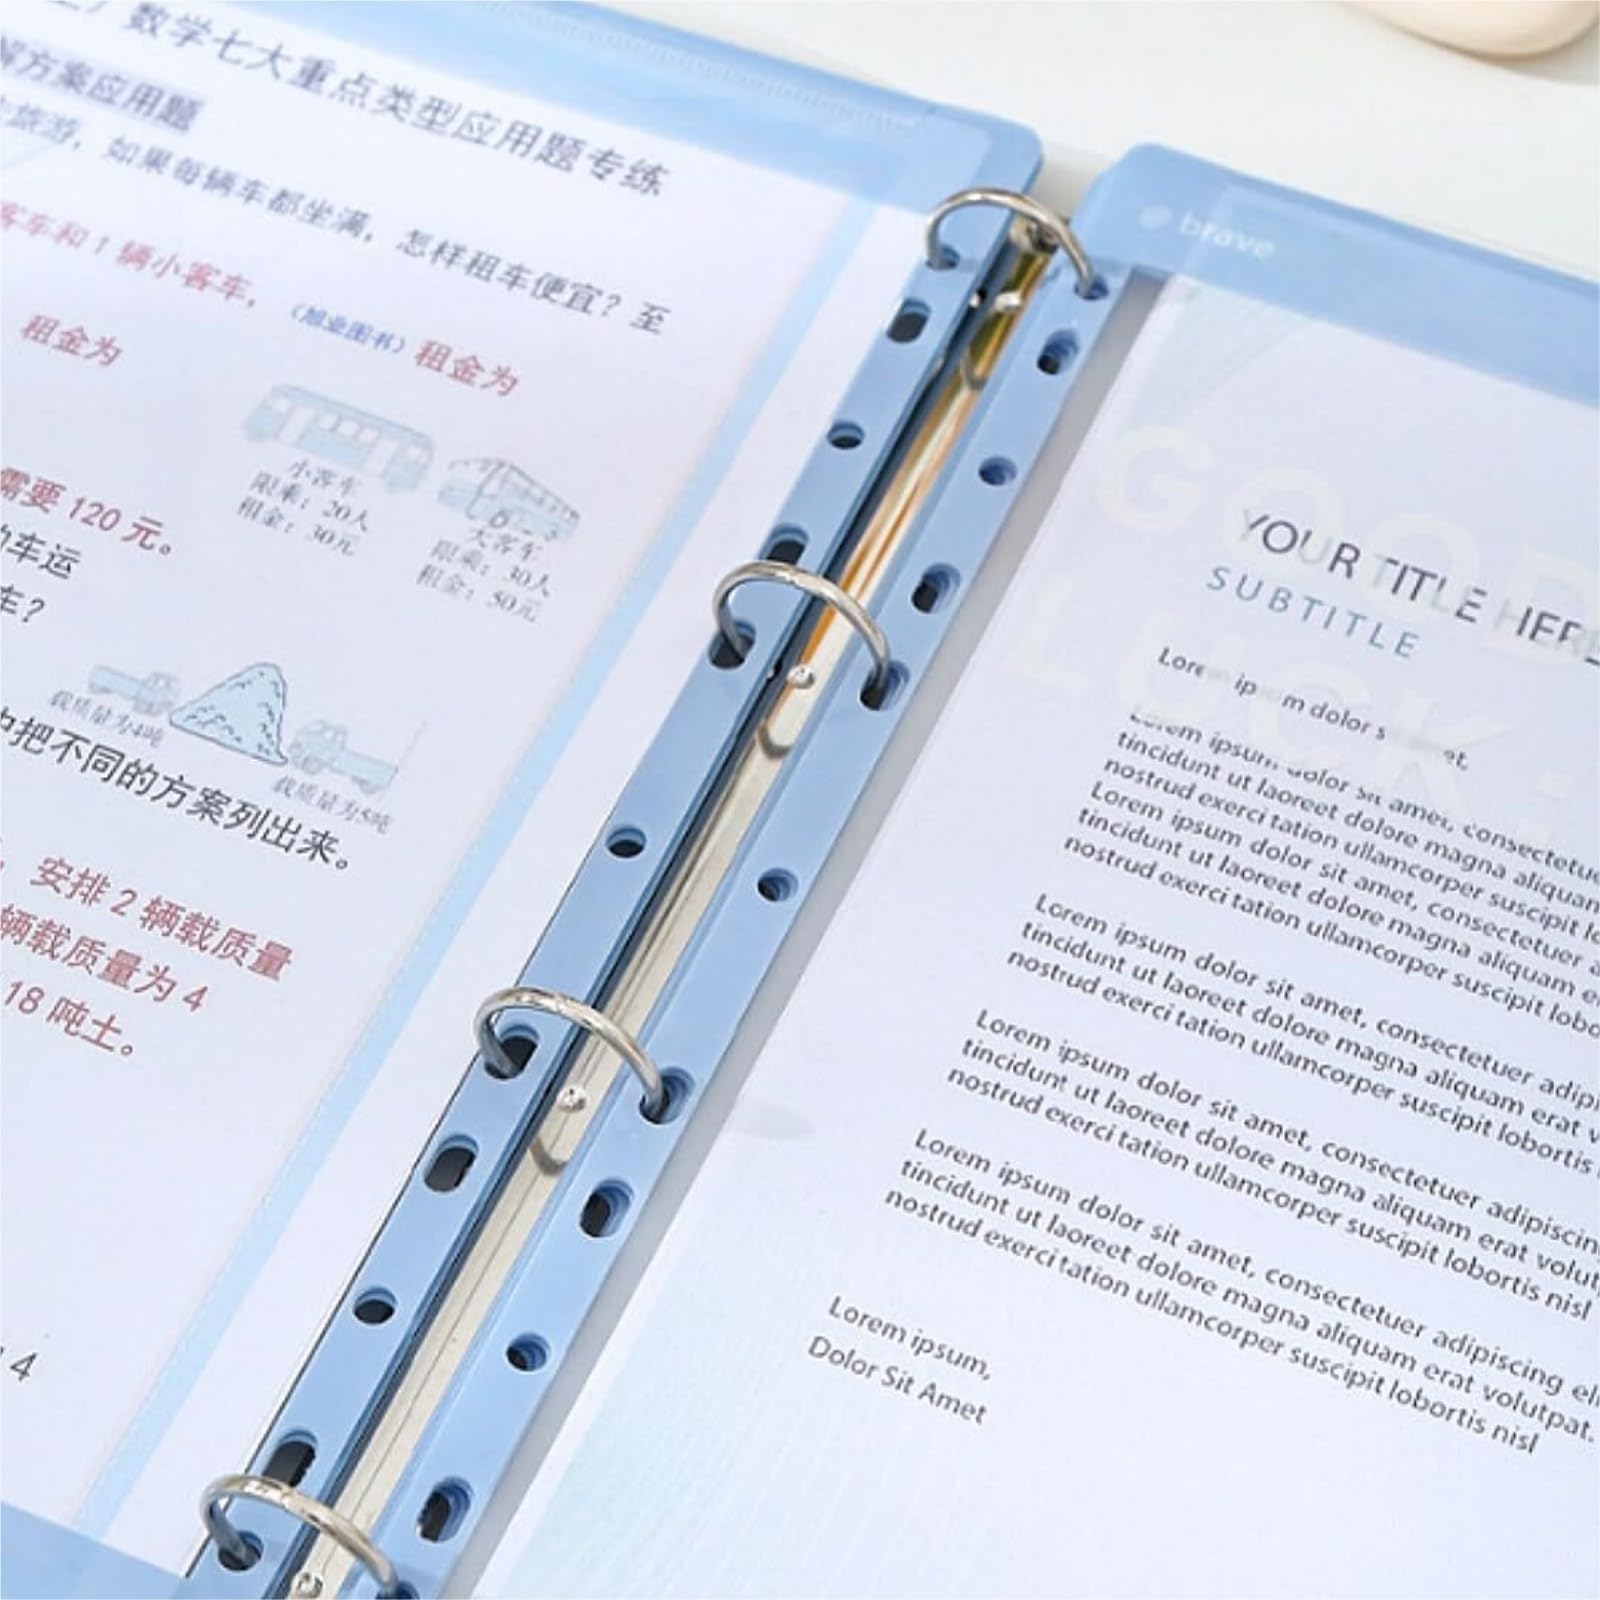 数学七大重点类型应用题专练
解方案应用题
旅游，如果每辆车都坐满，怎样租车便宜？至
客车和 1 辆小客车，（旭业图书）租金为
租金为
小客车
限乘：20人
租金：30元
大客车
限乘：30人
租金：50元
需要 120 元。
车运
车？
载质量为4吨
载质量为5吨
中把不同的方案列出来。
安排 2 辆载质量
辆载质量为 4
18 吨土。
4
brave
GOOD
LUCK
YOUR TITLE HERE
SUBTITLE
Lorem ipsum dolor sit amet,
Lorem ipsum dolor sit amet, consectetu
tincidunt ut laoreet dolore magna aliquan
nostrud exerci tation ullamcorper suscipit lo
Lorem ipsum dolor sit amet, consectetuer a
tincidunt ut laoreet dolore magna aliquam e
nostrud exerci tation ullamcorper suscipit lobo
Lorem ipsum dolor sit amet, consectetuer adipi
tincidunt ut laoreet dolore magna aliquam erat v
nostrud exerci tation ullamcorper suscipit lobortis
Lorem ipsum dolor sit amet, consectetuer adipiscin
tincidunt ut laoreet dolore magna aliquam erat volut
nostrud exerci tation ullamcorper suscipit lobortis nisl
Lorem ipsum dolor sit amet, consectetuer adipiscing eli
tincidunt ut laoreet dolore magna aliquam erat volutpat.
nostrud exerci tation ullamcorper suscipit lobortis nisl
Lorem ipsum,
Dolor Sit Amet